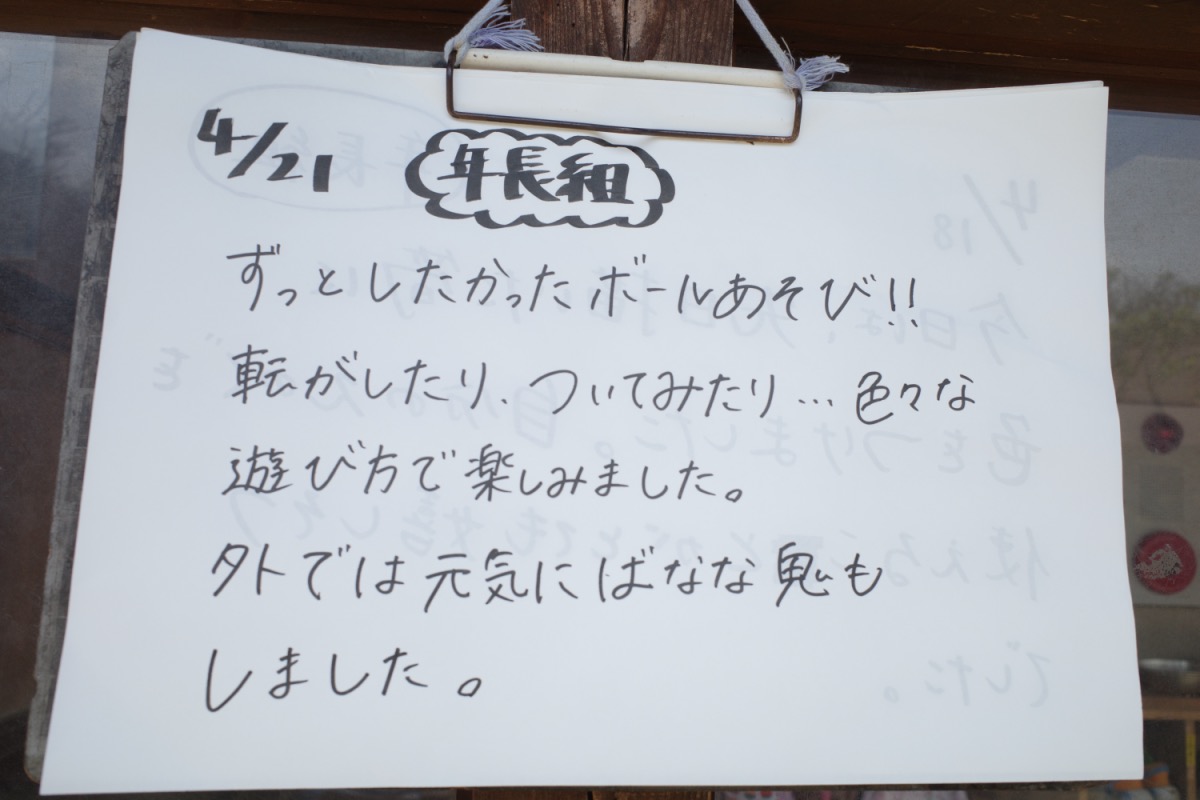 4/21 年長組
ずっとしたかったボールあそび!!
転がしたり、ついてみたり…色々な
遊び方で楽しみました。
外では元気にばなな鬼も
しました。